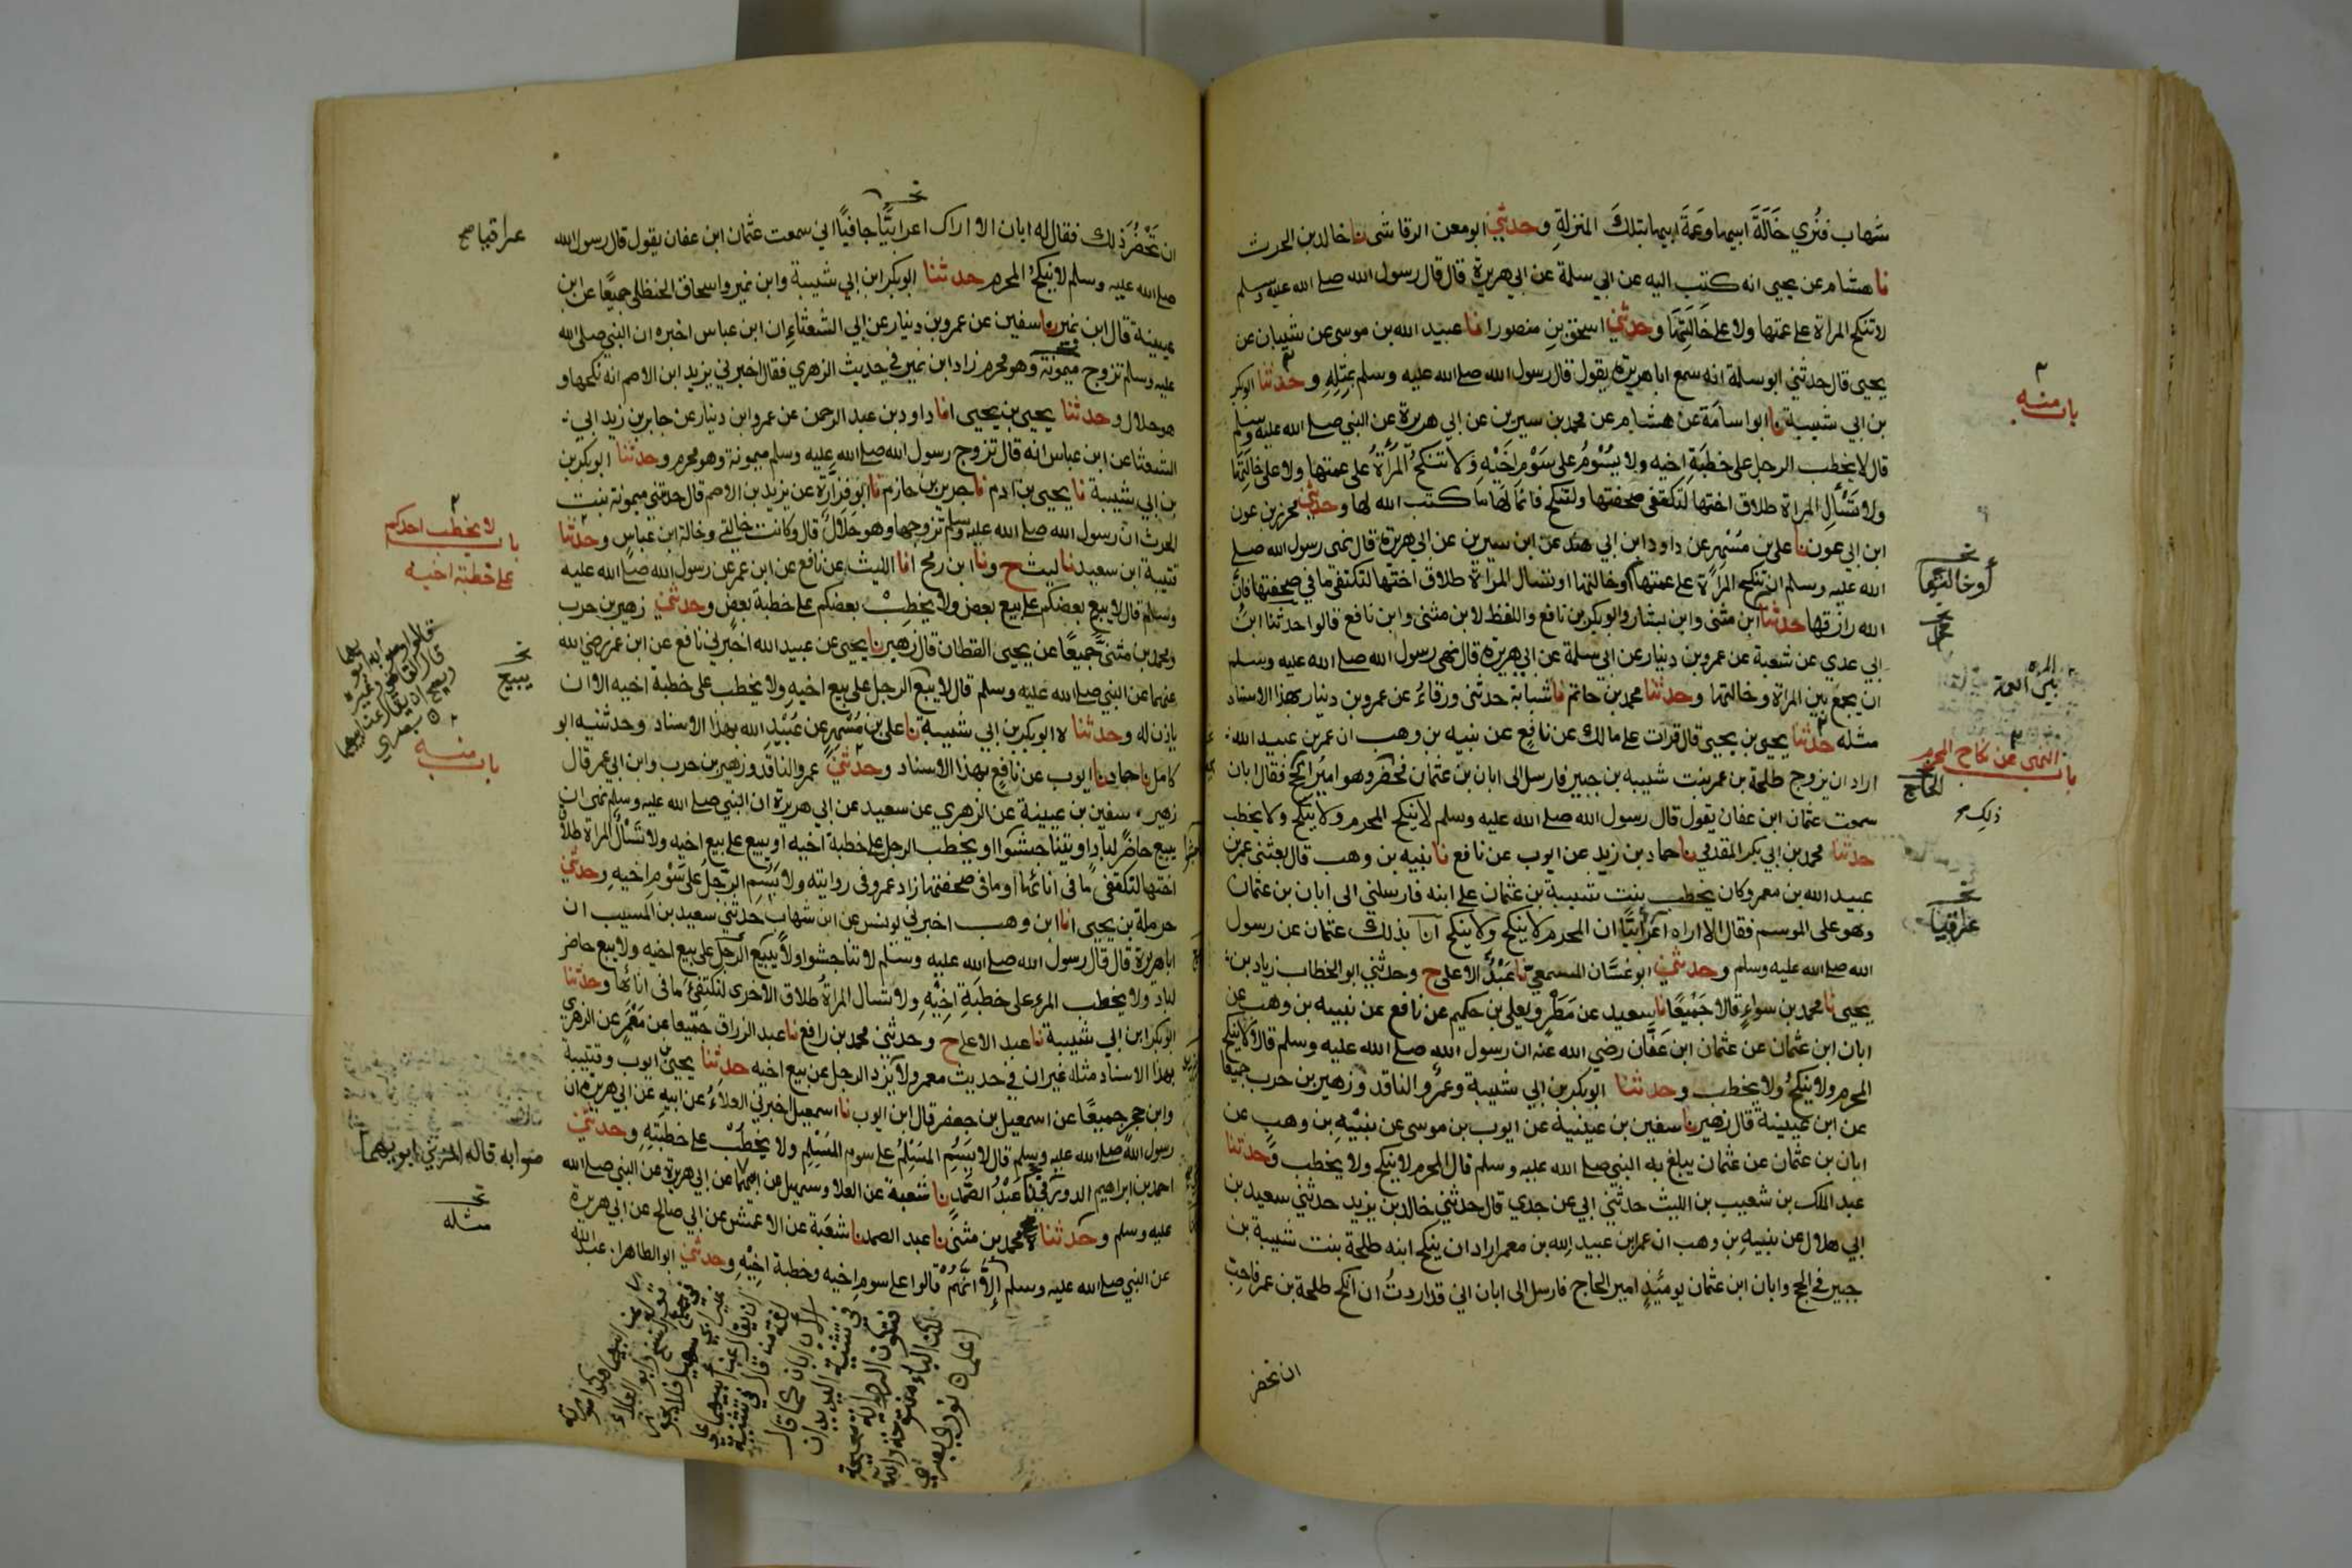 شهاب فنُري خَالَةَ ابيها وعَمَةَ ابيها بتلكَ المنزلةِ وحدثني ابو معن الرقاشى نا خالد بن الحرث
نا هشام عن يحيى انه كتب اليه عن ابي سلمة عن ابي هريرة قال قال رسول الله صلى الله عليه وسلم
لا تنكح المراة على عمتها ولا على خَالَتِهَا وحدثني اسحق بن منصور انا عبيد الله بن موسى عن شيبان عن
يحيى قال حدثني ابو سلمة انه سمع ابا هريرة يقول قال رسول الله صلى الله عليه وسلم بمثلِهِ وحدثنا ابو بكر
بن ابي شيبة نا ابو اسامَة عن هشام عن محمد بن سيرين عن ابي هريرة عن النبي صلى الله عليه وسلم
قال لا يخطب الرجل على خطبَةِ اخيه ولا يسُوْمُ على سَوْمِ اخَيْهِ وَلا تنكحُ المَرْأةُ على عمتها ولا على خالتِهَا
ولا تسْألِ المراة طلاق اختها لتكتفى صحفتها ولتنكح فانما لَهَا ما كتب الله لها وحدثني محرز بن عون
ابن ابي عون نا على بن مُسْهِرٍ عن داود ابن ابي هند عن ابن سيرين عن ابي هريرة قال نهى رسول الله صلى
الله عليه وسلم ان تنكح المراة على عمتها او خالتها او تسال المراة طلاق اختها لتكتفئ ما في صحفتها فان
الله رازقها حدثنا ابن مثنى وابن بشار وابو بكر بن نافع واللفظ لابن مثنى وابن نافع قالوا حدثنا ابنُ
ابي عدي عن شعبة عن عمرو بن دينار عن ابي سلمة عن ابي هريرة قال نهى رسول الله صلى الله عليه وسلم
ان يجمع بين المراة وخالتها وحدثنا محمد بن حاتم نا شبابة حدثنى ورقاءُ عن عمرو بن دينار بهذا الاسناد
مثله حدثنا يحيى بن يحيى قال قرات على مالك عن نافعٍ عن نبيه بن وهب ان عمر بن عبيد الله
اراد ان يزوج طلحة بن عمر بنت شيبه بن جبير فارسل الى ابان بن عثمان فحضر وهو اميرُ الحج فقال ابان
سمعت عثمان ابن عفان يقول قال رسول الله صلى الله عليه وسلم لا ينكح المحرم ولا يُنكح ولا يخطب
حدثنا محمد بن ابي بكر المقدمي نا حماد بن زيد عن ايوب عن نافع نا نبيه بن وهب قال بعثنى عمر بن
عبيد الله بن معمر وكان يخطب بنت شيبة بن عثمان على ابنه فارسلني الى ابان بن عثمان
وهو على الموسم فقال الا اراه اعْرَابيًّا ان المحرم لا يَنكح ولا يُنكح انا بذلك عثمان عن رسول
الله صلى الله عليه وسلم وحدثني ابو غسَّان المسمعيّ نا عَبْدُ الاعلى ح وحدثني ابو الخطاب زياد بن
يحيى نا محمد بن سواءٍ قالا جَمْيعًا نا سعيد عن مَطَرٍ ويعلى بن حكيم عن نافع عن نبيه بن وهب عن
ابان ابن عثمان عن عثمان ابن عَفَّان رضي الله عنه ان رسول الله صلى الله عليه وسلم قال لا ينكح
المحرم ولا يُنكحُ ولا يخطب وحدثنا ابو بكر بن ابي شيبة وعَمْرو الناقد وزهير بن حرب جميعًا
عن ابن عُيينةَ قال زهير نا سفين بن عيينة عن ايوب بن موسى عن نبَيْهِ بن وهب عن
ابان بن عثمان عن عثمان يبلغ به النبي صلى الله عليه وسلم قال المحرم لا ينكح ولا يخطب وحدثنا
عبد الملك بن شعيب بن الليث حدثني ابي عن جدي قال حدثني خالد بن يزيد حدثني سعيد بن
ابي هلال عن نبيهِ بن وهب ان عمر ابن عبيد الله بن معمر اراد ان ينكح ابنه طلحة بنت شيبة بن
جبير في الحج وابان ابن عثمان يومئذٍ امير الحاج فارسل الى ابان اني قد اردتُ ان انكح طلحة بن عمر فاحِبُّ
ان تحضر
باب منه
أو خالتها
المراة
باب النهى عن نكاح المحرم
الحاج
ذلك
عراقيا
ان تَحْضُرَ ذلك فقال له ابان الا اراك اعرابيًّا جافيًا اني سمعت عثمان ابن عفان يقول قال رسول الله
صلى الله عليه وسلم لا ينكحُ المحرم حدثنا ابو بكر ابن ابي شيبة وابن نمير واسحاق الحنظلى جميعًا عن ابن
عيينة قال ابن نمير نا سفين عن عمرو بن دينار عن ابي الشعثاءِ ان ابن عباس اخبره ان النبي صلى الله
عليه وسلم تزوج ميمُونة وهو محرم زاد ابن نمير فحديث الزهري فقال اخبرني يزيد ابن الاصم انه نكحها و
هو حلال وحدثنا يحيى بن يحيى انا داود بن عبد الرحمن عن عمرو ابن دينار عن جابر بن زيد ابي
الشعثا عن ابن عباس انه قال تزوج رسول الله صلى الله عليه وسلم ميمونة وهو محرم وحدثنا ابو بكر بن
بن ابي شيبة نا يحيى بن ادم نا جرير بن حازم نا ابو فزارَة عن يزيد بن الاصم قال حدثتني ميمونة بنت
الحرث ان رسول الله صلى الله عليه وسلم تزوجها وهو حَلَالٌ قال وكانت خالتي وخالة ابن عباس وحدثنا
قتيبة ابن سعيد نا ليث ح ونا ابن رمح انا الليث عن نافع عن ابن عمر عن رسول الله صلى الله عليه
وسلم قال لا يبع بعضكم على بيع بعض ولا يخطبْ بعضكم على خطبة بعضٍ وحدثني زهير بن حرب
ومحمد بن مثنى جَميعًا عن يحيى القطان قال زهير نا يحيى عن عبيد الله اخبرني نافع عن ابن عمر رضي الله
عنهما عن النبي صلى الله عليه وسلم قال لا يبع الرجل على بيع اخيهِ ولا يخطب على خطبة اخيه الا ان
ياذن له وحدثنا ه ابو بكر بن ابي شيبة نا على بن مُسْهرٍ عن عُبَيْدِ الله بهذا الاسناد وحدثنيه ابو
كامل نا حماد نا ايوب عن نافعٍ بهذا الاسناد وحدثني عمرو الناقد وزهير بن حرب وابن ابي عمر قال
زهير سفين بن عيينة عن الزهري عن سعيد عن ابي هريرة ان النبي صلى الله عليه وسلم نهى ان
يبيع حاضرٌ لبادٍ او يتناجشوا او يخطب الرجل على خطبة اخيه او يبيع على بيع اخيه ولا تسْأل المراة طلاق
اختها لتكتفئ ما فى انائها او ما فى صحفتها زاد عمرو فى روايته ولا يسُمِ الرّجل على سَوْمِ اخيهِ وحدثني
حرملة بن يحيى انا ابن وهب اخبرني يونس عن ابن شهاب حدثني سعيد بن المسيب ان
ابا هريرة قال قال رسول الله صلى الله عليه وسلم لا تناجشوا ولا يبع الرجل على بيع اخيه ولا يبع حاضر
لباد ولا يخطب المرء على خطبَةِ اخِيْهِ ولا تسال المراةُ طلاق الاخرى لتكتفئ ما فى انائها وحدثنا
ابو بكر ابن ابي شيبة نا عبد الاعلى ح وحدثني محمد بن رافع نا عبد الرزاق جميعا عن مَعْمَرٍ عن الزهري
بهذا الاسناد مثله غير ان في حديث معمر ولا يزد الرجل عن بيع اخيه حدثنا يحيى بن ايوب وقتيبة
وابن حجر جميعًا عن اسمعيل بن جعفر قال ابن ايوب نا اسمعيل اخبرني العلاءُ عن ابيه عن ابي هريرة ان
رسول الله صلى الله عليه وسلم قال لا يسُمِ المسْلمُ على سوم المسْلمِ ولا يخطُبْ على خطبتِهِ وحدثني
احمد بن ابراهيم الدورقي نا عَبْدُ الصَّمدِ نا شعبة عن العلا وسهيل عن ابيهما عن ابي هريرة عن النبي صلى الله
عليه وسلم وحدثنا ه محمد بن مثنىً نا عبد الصمد نا شعبَة عن الاعمش عن ابي صالح عن ابي هريرة
عن النبي صلى الله عليه وسلم إلاَّ انَّهُمْ قالوا على سوم اخيه وخطبة اخِيْهِ وحدثني ابو الطاهر انا عبد الله
عراقيا صح
باب لا يخطب احدكم
على خطبة اخيه
يبيع
باب منه
مثله